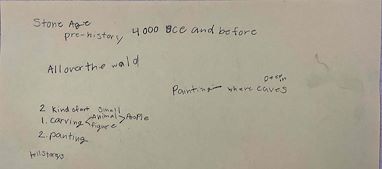 Stone Age
pre-history 4000 BCE and before
All over the wald
Design
Painting where caves
2 kind of art small
1. carving < Animal > People
figure
2. panting